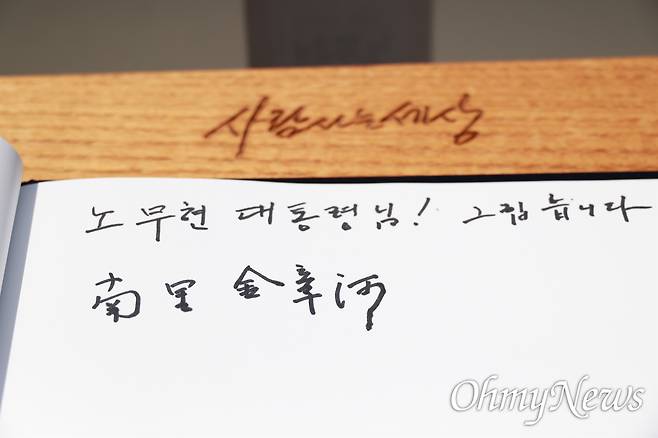 사람사는세상
노무현 대통령님! 그립습니다
南星 金章河
OhmyNews